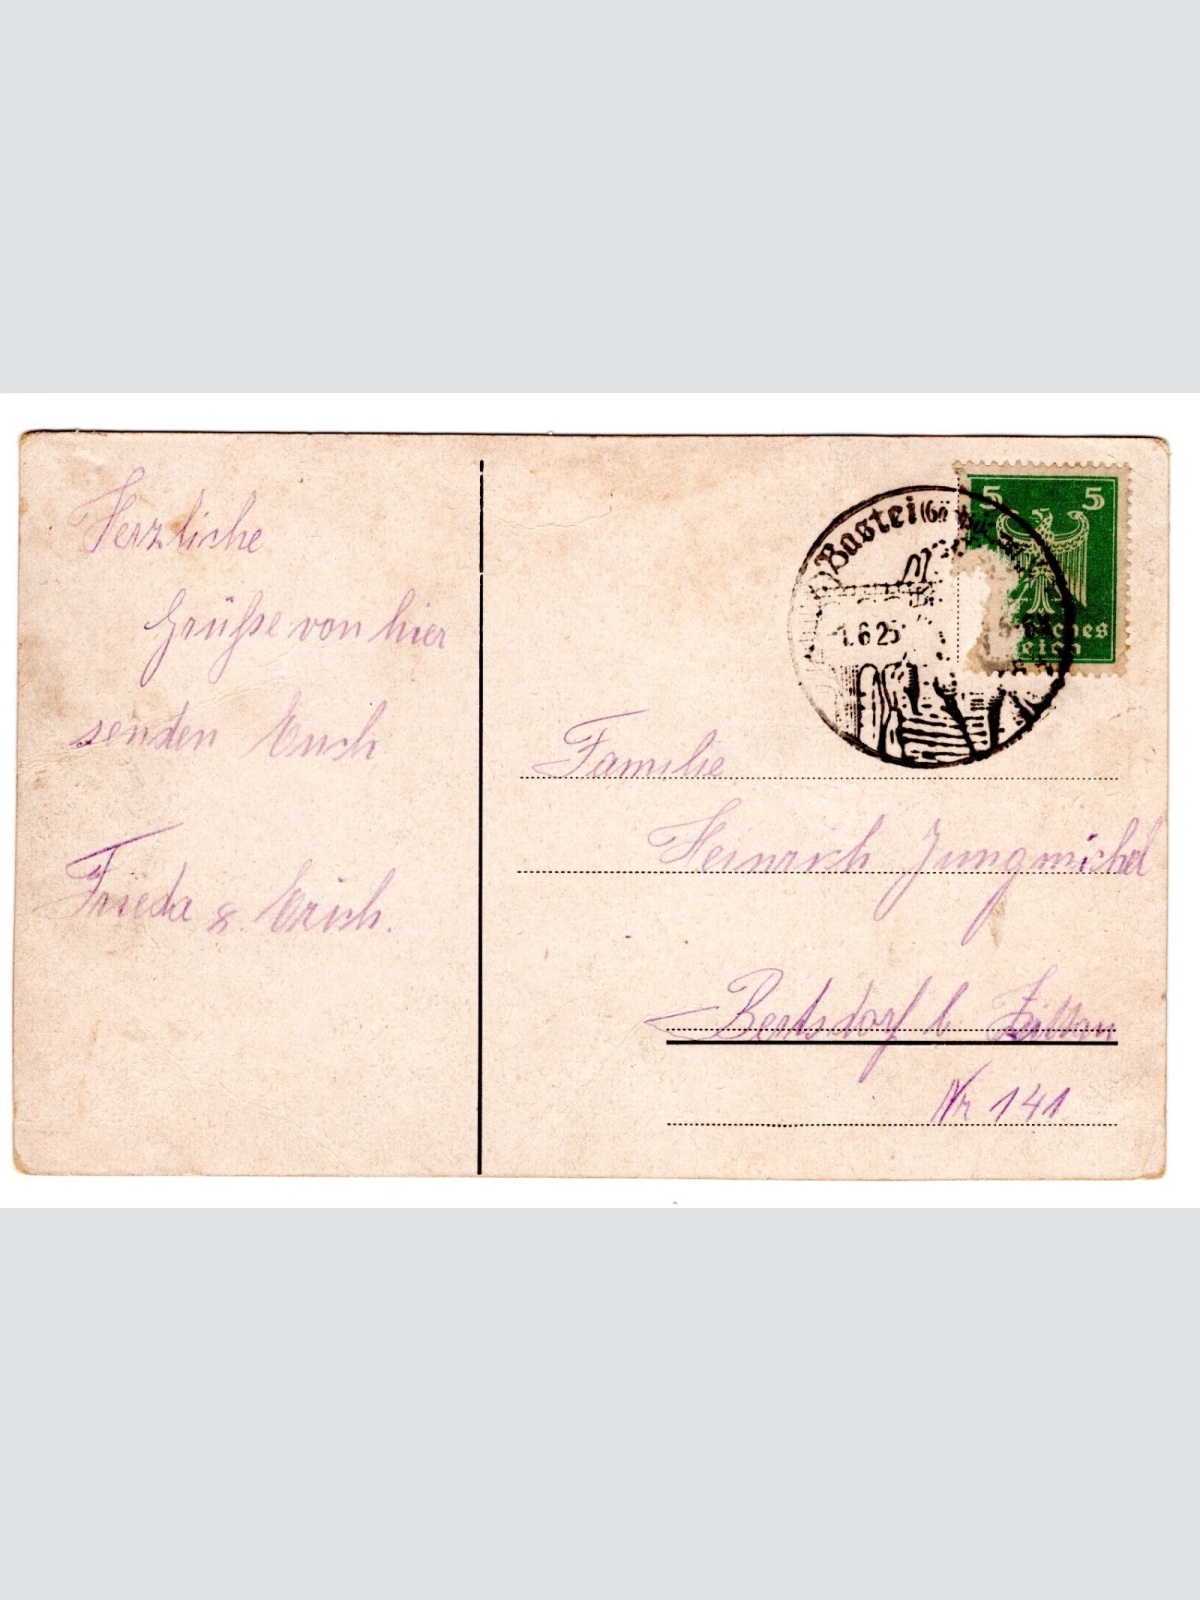 Herzliche
Grüße von hier
senden Euch
Frieda & Erich.
Bastei
1.6.25
5 5
Deutsches
Reich
Familie
Heinrich Jungmichel
Bertsdorf b Zittau
Nr 141